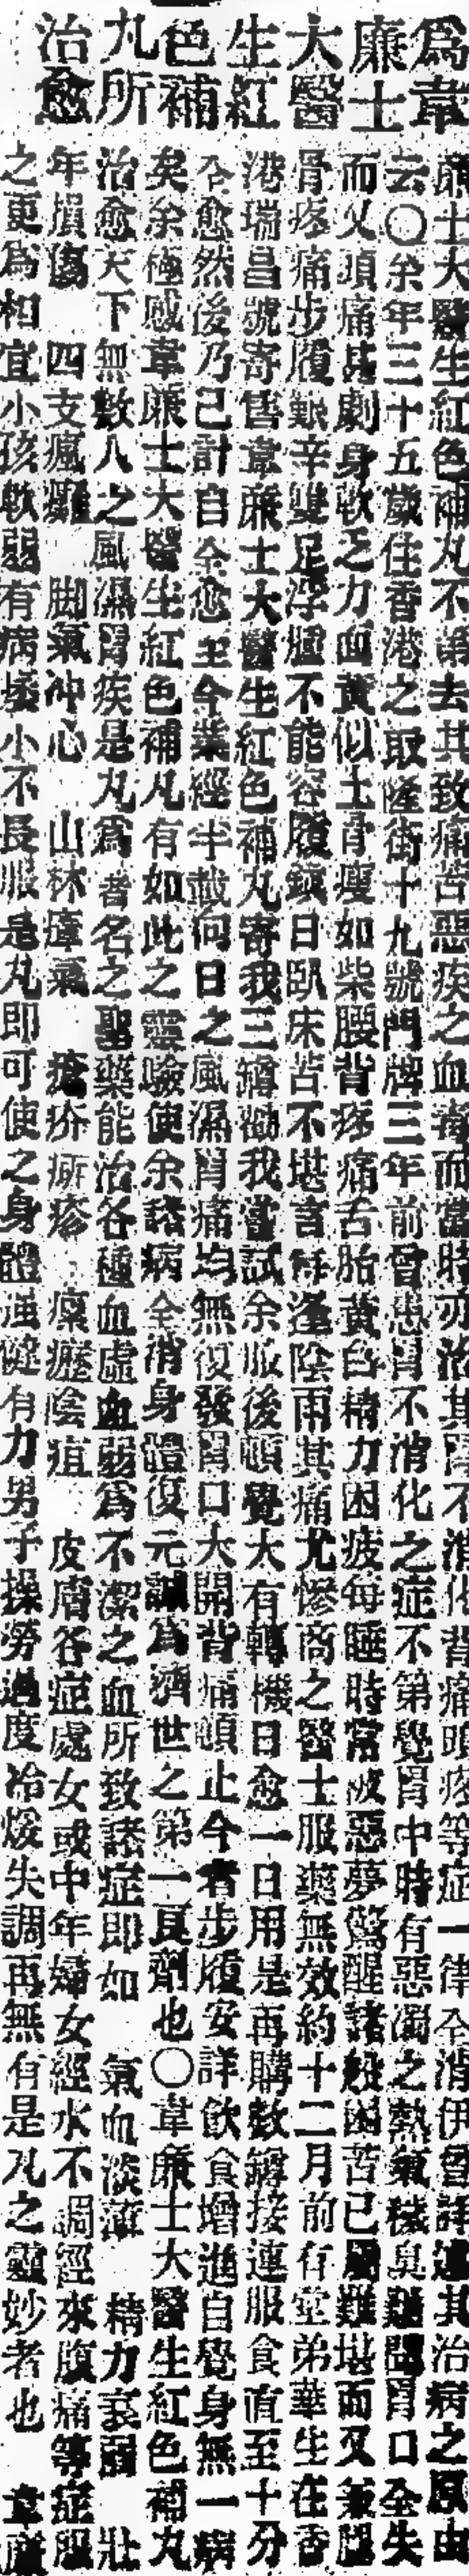 爲韋
廉士
大醫
生紅
色補
丸所
治愈
廉士大醫生紅色補丸不第去其致痛苦惡疾之血毒而當時亦治其胃不消化背痛頭疼等症一律全消伊曾詳述其治病之原由
云〇余年三十五歲住香港之取隆街十九號門牌三年前曾患胃不消化之症不第覺胃中時有惡濁之熱氣穢臭難聞胃口全失
而又頭痛甚劇身軟乏力面黃似土骨瘦如柴腰背疼痛舌胎黃白精力困疲每睡時常被惡夢驚醒諸般困苦已屬難堪而又兼腿
骨疼痛步履艱辛雙足浮腫不能容履鎮日臥床苦不堪言每逢陰雨其痛尤慘商之醫士服藥無效約十二月前有堂弟華生在香
港瑞昌號寄售韋廉士大醫生紅色補丸寄我三罇勸我嘗試余服後頓覺大有轉機日愈一日用是再購數罇接連服食直至十分
全愈然後乃已計自全愈至今業經半載向日之風濕骨痛均無復發胃口大開背痛頓止今者步履安詳飲食增進自覺身無一病
矣余極感韋廉士大醫生紅色補丸有如此之靈驗使余諸病全消身體復元誠爲濟世之第一良劑也〇韋廉士大醫生紅色補丸
治愈天下無數人之風濕骨疾是丸爲著名之聖藥能治各種血虛血弱爲不潔之血所致諸症即如 氣血淡薄 精力衰弱 壯
年損傷 四支瘋癱 脚氣冲心 山林瘴氣 瘡疥癍疹 瘰癧陰疽 皮膚各症處女或中年婦女經水不調經來腹痛等症服
之更爲相宜小孩軟弱有病矮小不長服是丸即可使之身體强健有力男子操勞過度冷煖失調再無有是丸之靈妙者也 韋廉